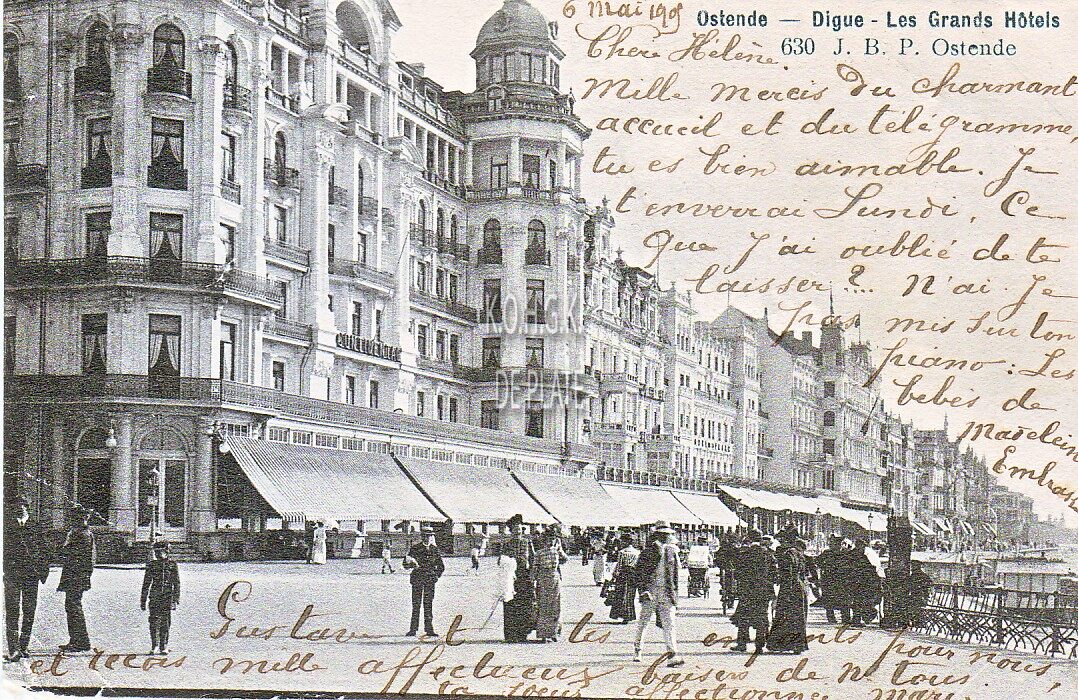 Ostende — Digue - Les Grands Hôtels
630 J. B. P. Ostende
6 Mai 190
Chère Hélène.
Mille mercis du charmant
accueil et du télégramme,
tu es bien aimable. Je
t'enverrai Lundi. Ce
que J'ai oublié de te
laisser ?.. N'ai Je
pas mis sur ton
piano. Les
bébés de
Madeleine
Embrasse
CONTINENTAL
KO.H.G.K.
DEPLAT
Gustave et tes enfants pour nous,
et reçois mille affectueux baisers de n. tous.
ta sœur affectionnée